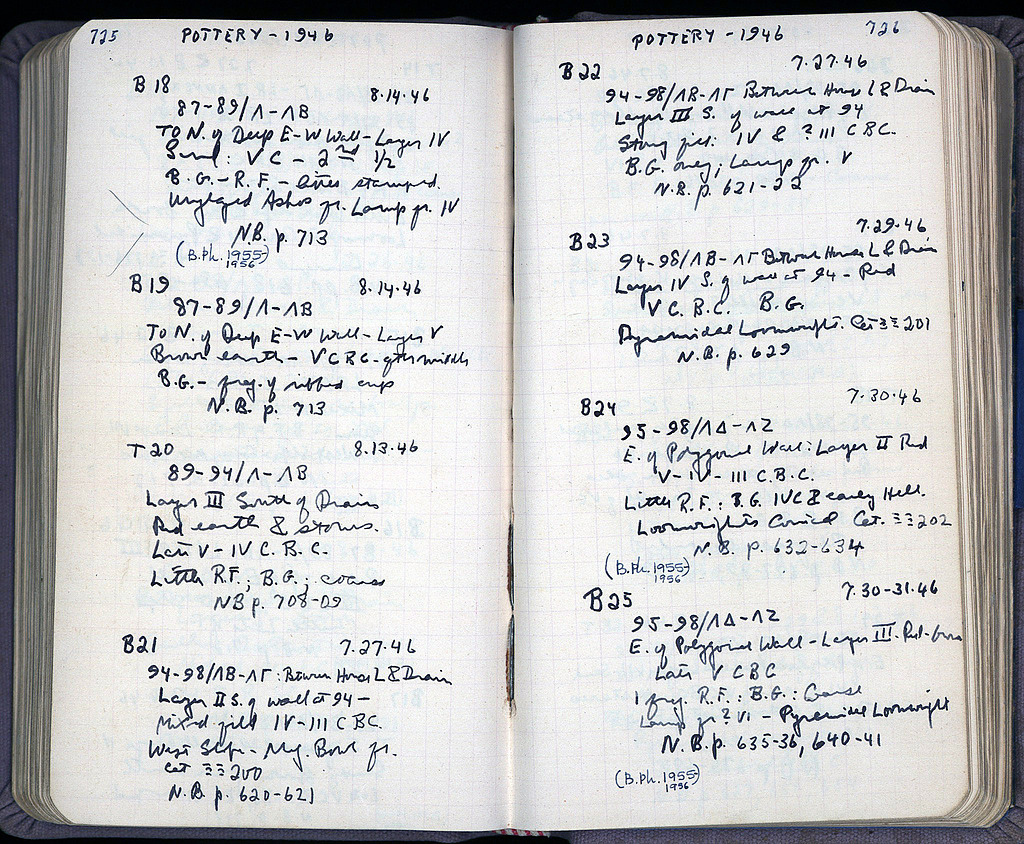 725
POTTERY - 1946
B 18
8.14.46
87-89/Λ-ΛB
TO N. of Deep E-W Wall - Layer IV
V C - 2nd 1/2
B.G. - R.F. - lines stamped.
Unglazed Askos fr. Lamp fr. IV
N.B. p. 713
(B.Ph. 1955-)
1956
B 19
8.14.46
87-89/Λ-ΛB
TO N. of Deep E-W Wall - Layer V
Brown earth - V C BC - after middle
B.G. - frag. of ribbed cup
N.B. p. 713
T 20
8.13.46
89-94/Λ-ΛB
Layer III South of Drain
Red earth & stones.
Late V - IV C. B.C.
Little R.F.; B.G.; coarse
NB p. 708-09
B21
7.27.46
94-98/ΛB-ΛΓ: Between House L & Drain
Layer II S. of wall at 94 -
Mixed fill IV-III C BC.
West Slope - Meg. Bowl fr.
Cat 200
N.B. p. 620-621
POTTERY - 1946
726
B22
7.27.46
94-98/ΛB-ΛΓ Between House L & Drain
Layer III S. of wall at 94
Stony fill: IV & ? III C BC.
B.G. only; Lamp fr. V
N.B. p. 621-22
B23
7.29.46
94-98/ΛB-ΛΓ Between House L & Drain
Layer IV S. of wall at 94 - Red
V C. B.C. B.G.
Pyramidal Loomweight. Cat 201
N.B. p. 629
B24
7.30.46
95-98/ΛΔ-ΛZ
E. of Polygonal Wall: Layer II Red
V - IV - III C. B.C.
Little R.F.: B.G. IVC & early Hell.
Loomweights Conical Cat. 202
N.B. p. 632-634
(B.Ph. 1955-)
1956
B25
7.30-31.46
95-98/ΛΔ-ΛZ
E. of Polygonal Wall - Layer III. Red-brown
Late V C BC
1 frag. R.F.: B.G.: Coarse
Lamp fr ? VI - Pyramidal Loomweight
N.B. p. 635-36, 640-41
(B.Ph. 1955-)
1956